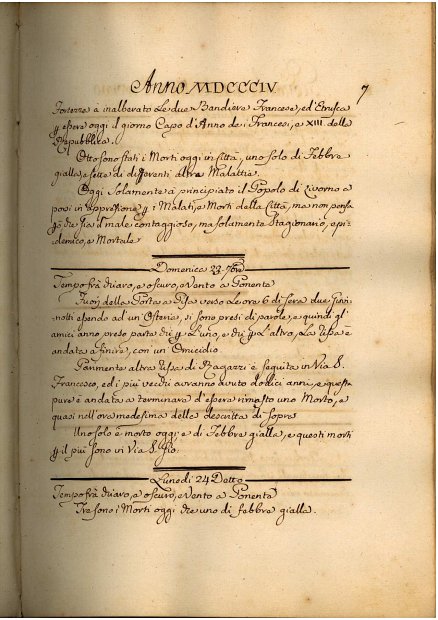 Anno MDCCCIV
7
Fortezze à inalberato Le due Bandiere Francese, ed' Etrusca
p essere oggi il giorno Capo d'Anno de i Francesi, e XIII. della
Repubblica.
Otto sono stati i Morti oggi in Città, uno solo di Febbre
gialla, e sette di differenti altre Malattie.
Oggi Solamente à principiato il Popolo di Livorno a
porsi in apprensione p i Malati, e Morti della Città, ma non pensa
che sia il male contaggioso, ma solamente Stagionario, epi-
demico, e Mortale
Domenica 23. 7bre
Tempo frà chiaro, e oscuro, e Vento a Ponente
Fuori della Porta a Pisa verso Le ore 6 di sera due Giovi-
notti essendo ad un' Osteria, si sono presi di parole, e quindi gl'
amici anno preso parte chi p L'uno, e chi p L'altro, La rissa è
andata a finire, con un Omicidio
Parimente altra rissa di Ragazzi è seguita in Via S.
Francesco, ed i più vecchi avranno avuto dodici anni, e questa
pure è andata a terminare d'essere rimasto uno Morto, e
quasi nell'ora medesima della descritta di sopra
Uno solo è morto oggi, e di Febbre gialla, e questi morti
p il più sono in Via S. Gio:
Lunedi 24 Detto
Tempo frà chiaro, e oscuro, e Vento a Ponente
Tre sono i Morti oggi che uno di febbre gialla.